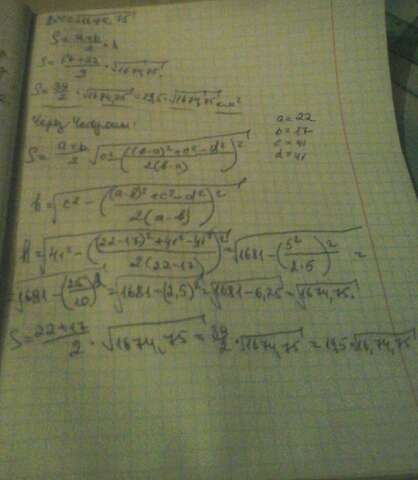 S = a+b/2 · h
S = 17+22/2 · √1674,75
S = 39/2 · √1674,75 = 19,5 · √1674,75 см²
Через
a = 22
b = 17
c = 41
d = 41
S = a+b/2 √c² - (((b-a)² + c² - d²)/2(b-a))²
h = √c² - (((a-b)² + c² - d²)/2(a-b))²
h = √41² - (((22-17)² + 41² - 41²)/2(22-17))² = √1681 - (5²/2·5)² =
= √1681 - (25/10)² = √1681 - (2,5)² = √1681 - 6,25 = √1674,75
S = 22+17/2 · √1674,75 = 39/2 · √1674,75 = 19,5 · √16,74,75